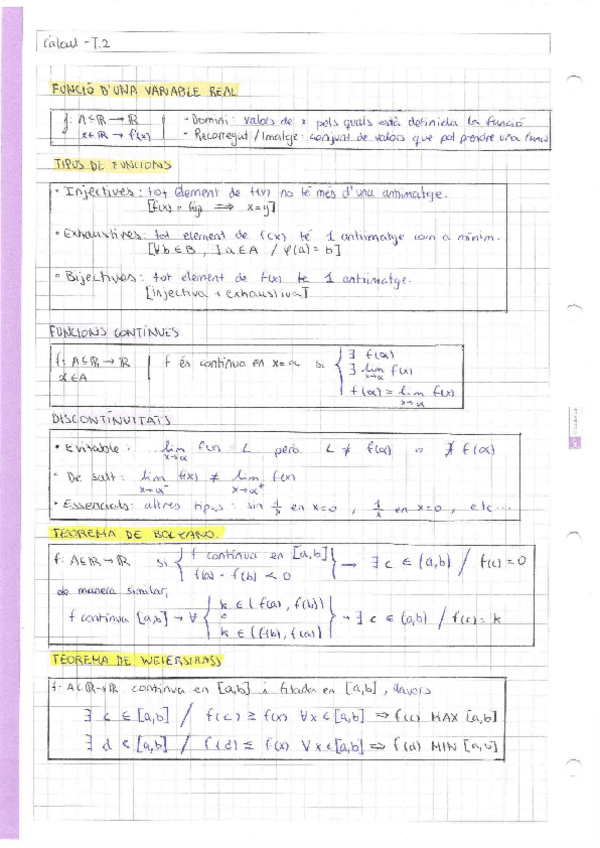 Càlcul - T.2
FUNCIÓ D'UNA VARIABLE REAL
f: A⊆ℝ → ℝ
x∈ℝ → f(x)
- Domini: valors de x pels quals està definida la funció
- Recorregut / Imatge: conjunt de valors que pot prendre una funció
TIPUS DE FUNCIONS
• Injectives: tot element de f(x) no té més d'una antiimatge.
[f(x) = f(y) ⟹ x=y]
• Exhaustives: tot element de f(x) té 1 antiimatge com a mínim.
[∀b∈B, ∃a∈A / φ(a) = b]
• Bijectives: tot element de f(x) té 1 antiimatge.
[injectiva + exhaustiva]
FUNCIONS CONTÍNUES
f: A⊆ℝ → ℝ
α∈A
f és contínua en x=α si
∃ f(α)
∃ lim f(x)
x→α
f(α) = lim f(x)
x→α
DISCONTINUITATS
• Evitable: lim f(x) = L però L ≠ f(α) o ∄ f(α)
x→α
• De salt: lim f(x) ≠ lim f(x)
x→α⁻ x→α⁺
• Essencials: altres tipus: sin 1/x en x=0, 1/x en x=0, etc...
TEOREMA DE BOLZANO.
f: A∈ℝ → ℝ si { f contínua en [a,b]
f(a) · f(b) < 0 } → ∃ c ∈ (a,b) / f(c) = 0
de manera similar,
f contínua [a,b] → ∀ { k ∈ (f(a), f(b))
o
k ∈ (f(b), f(a)) } → ∃ c ∈ (a,b) / f(c) = k
TEOREMA DE WEIERSTRASS
f: A⊆ℝ→ℝ contínua en [a,b] i fitada en [a,b], llavors
∃ c ∈ [a,b] / f(c) ≥ f(x) ∀x∈[a,b] ⇒ f(c) MAX [a,b]
∃ d ∈ [a,b] / f(d) ≤ f(x) ∀x∈[a,b] ⇒ f(d) MIN [a,b]